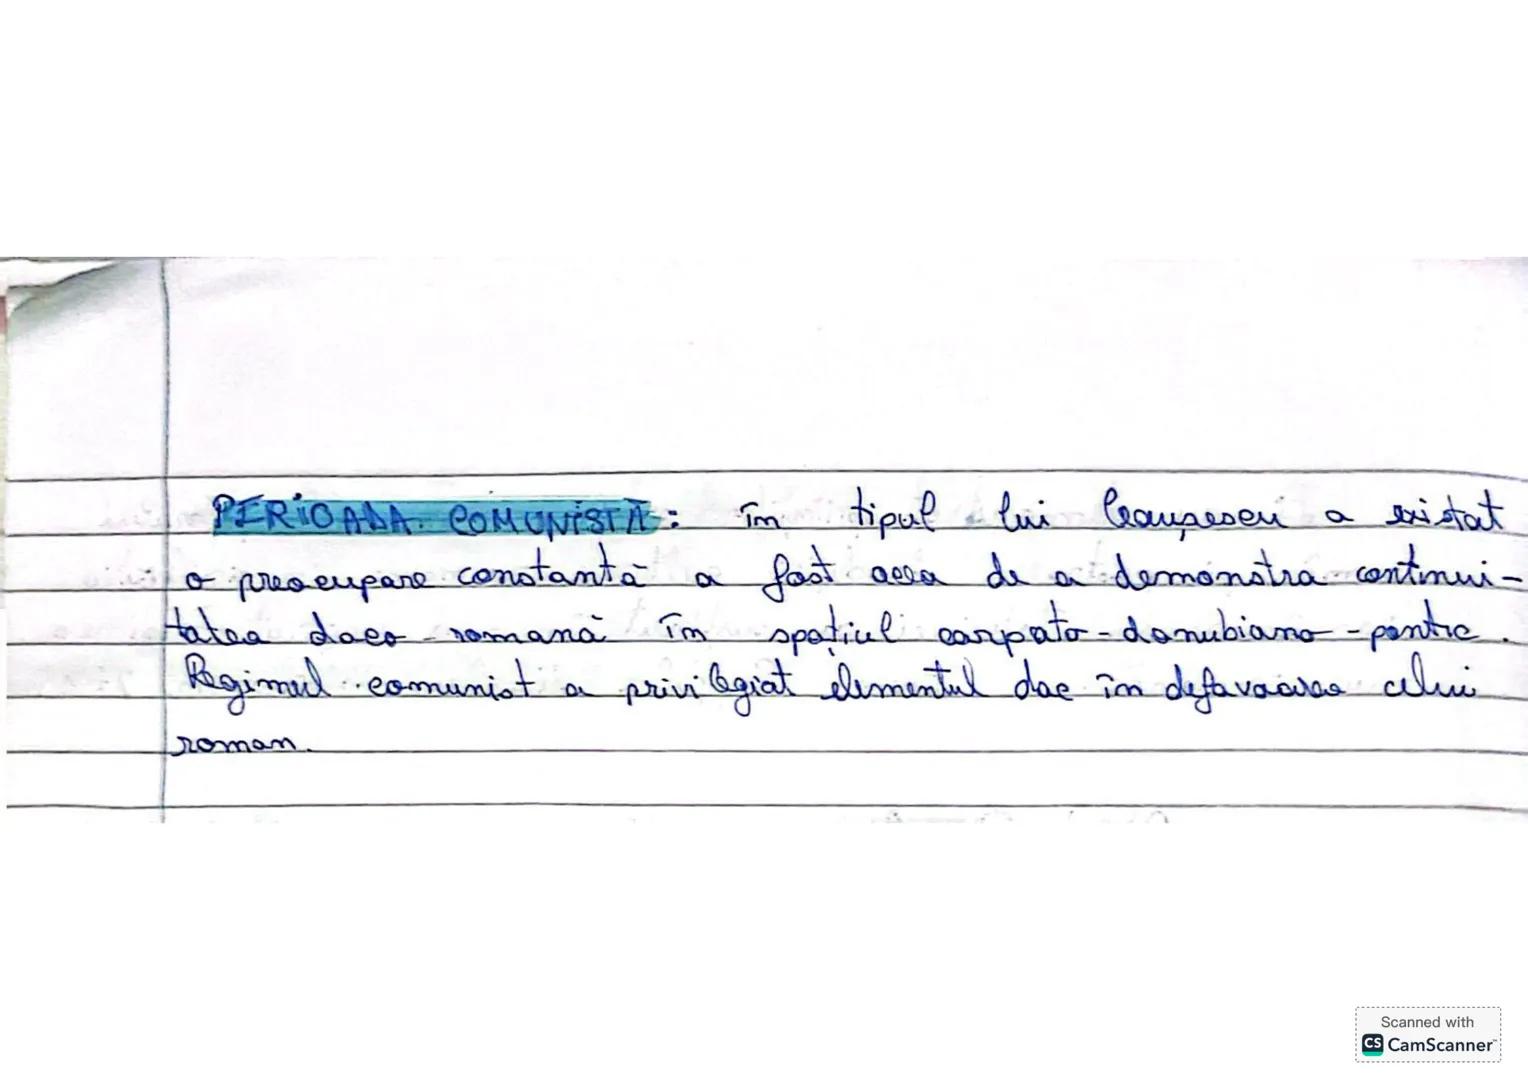 PERIOADA COMUNISTĂ: în tipul lui Ceaușescu a existat
o preocupare constantă a fost aeea de a demonstra continui-
tatea daco-romană în spațiul carpato-danubiano-pontic.
Regimul comunist a privilegiat elementul dac în defavoarea celui
roman.
Scanned with
CS CamScanner